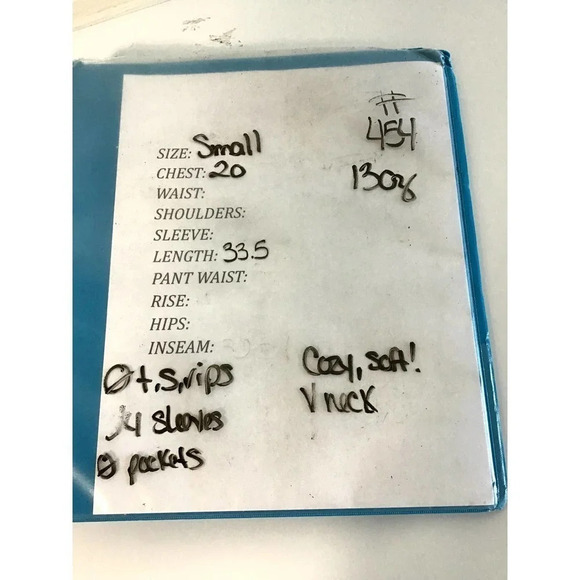 #
454
13oz
SIZE: Small
CHEST: 20
WAIST:
SHOULDERS:
SLEEVE:
LENGTH: 33.5
PANT WAIST:
RISE:
HIPS:
INSEAM:
Ø t, s, rips
3/4 sleeves
Ø pockets
Cozy, soft!
V neck